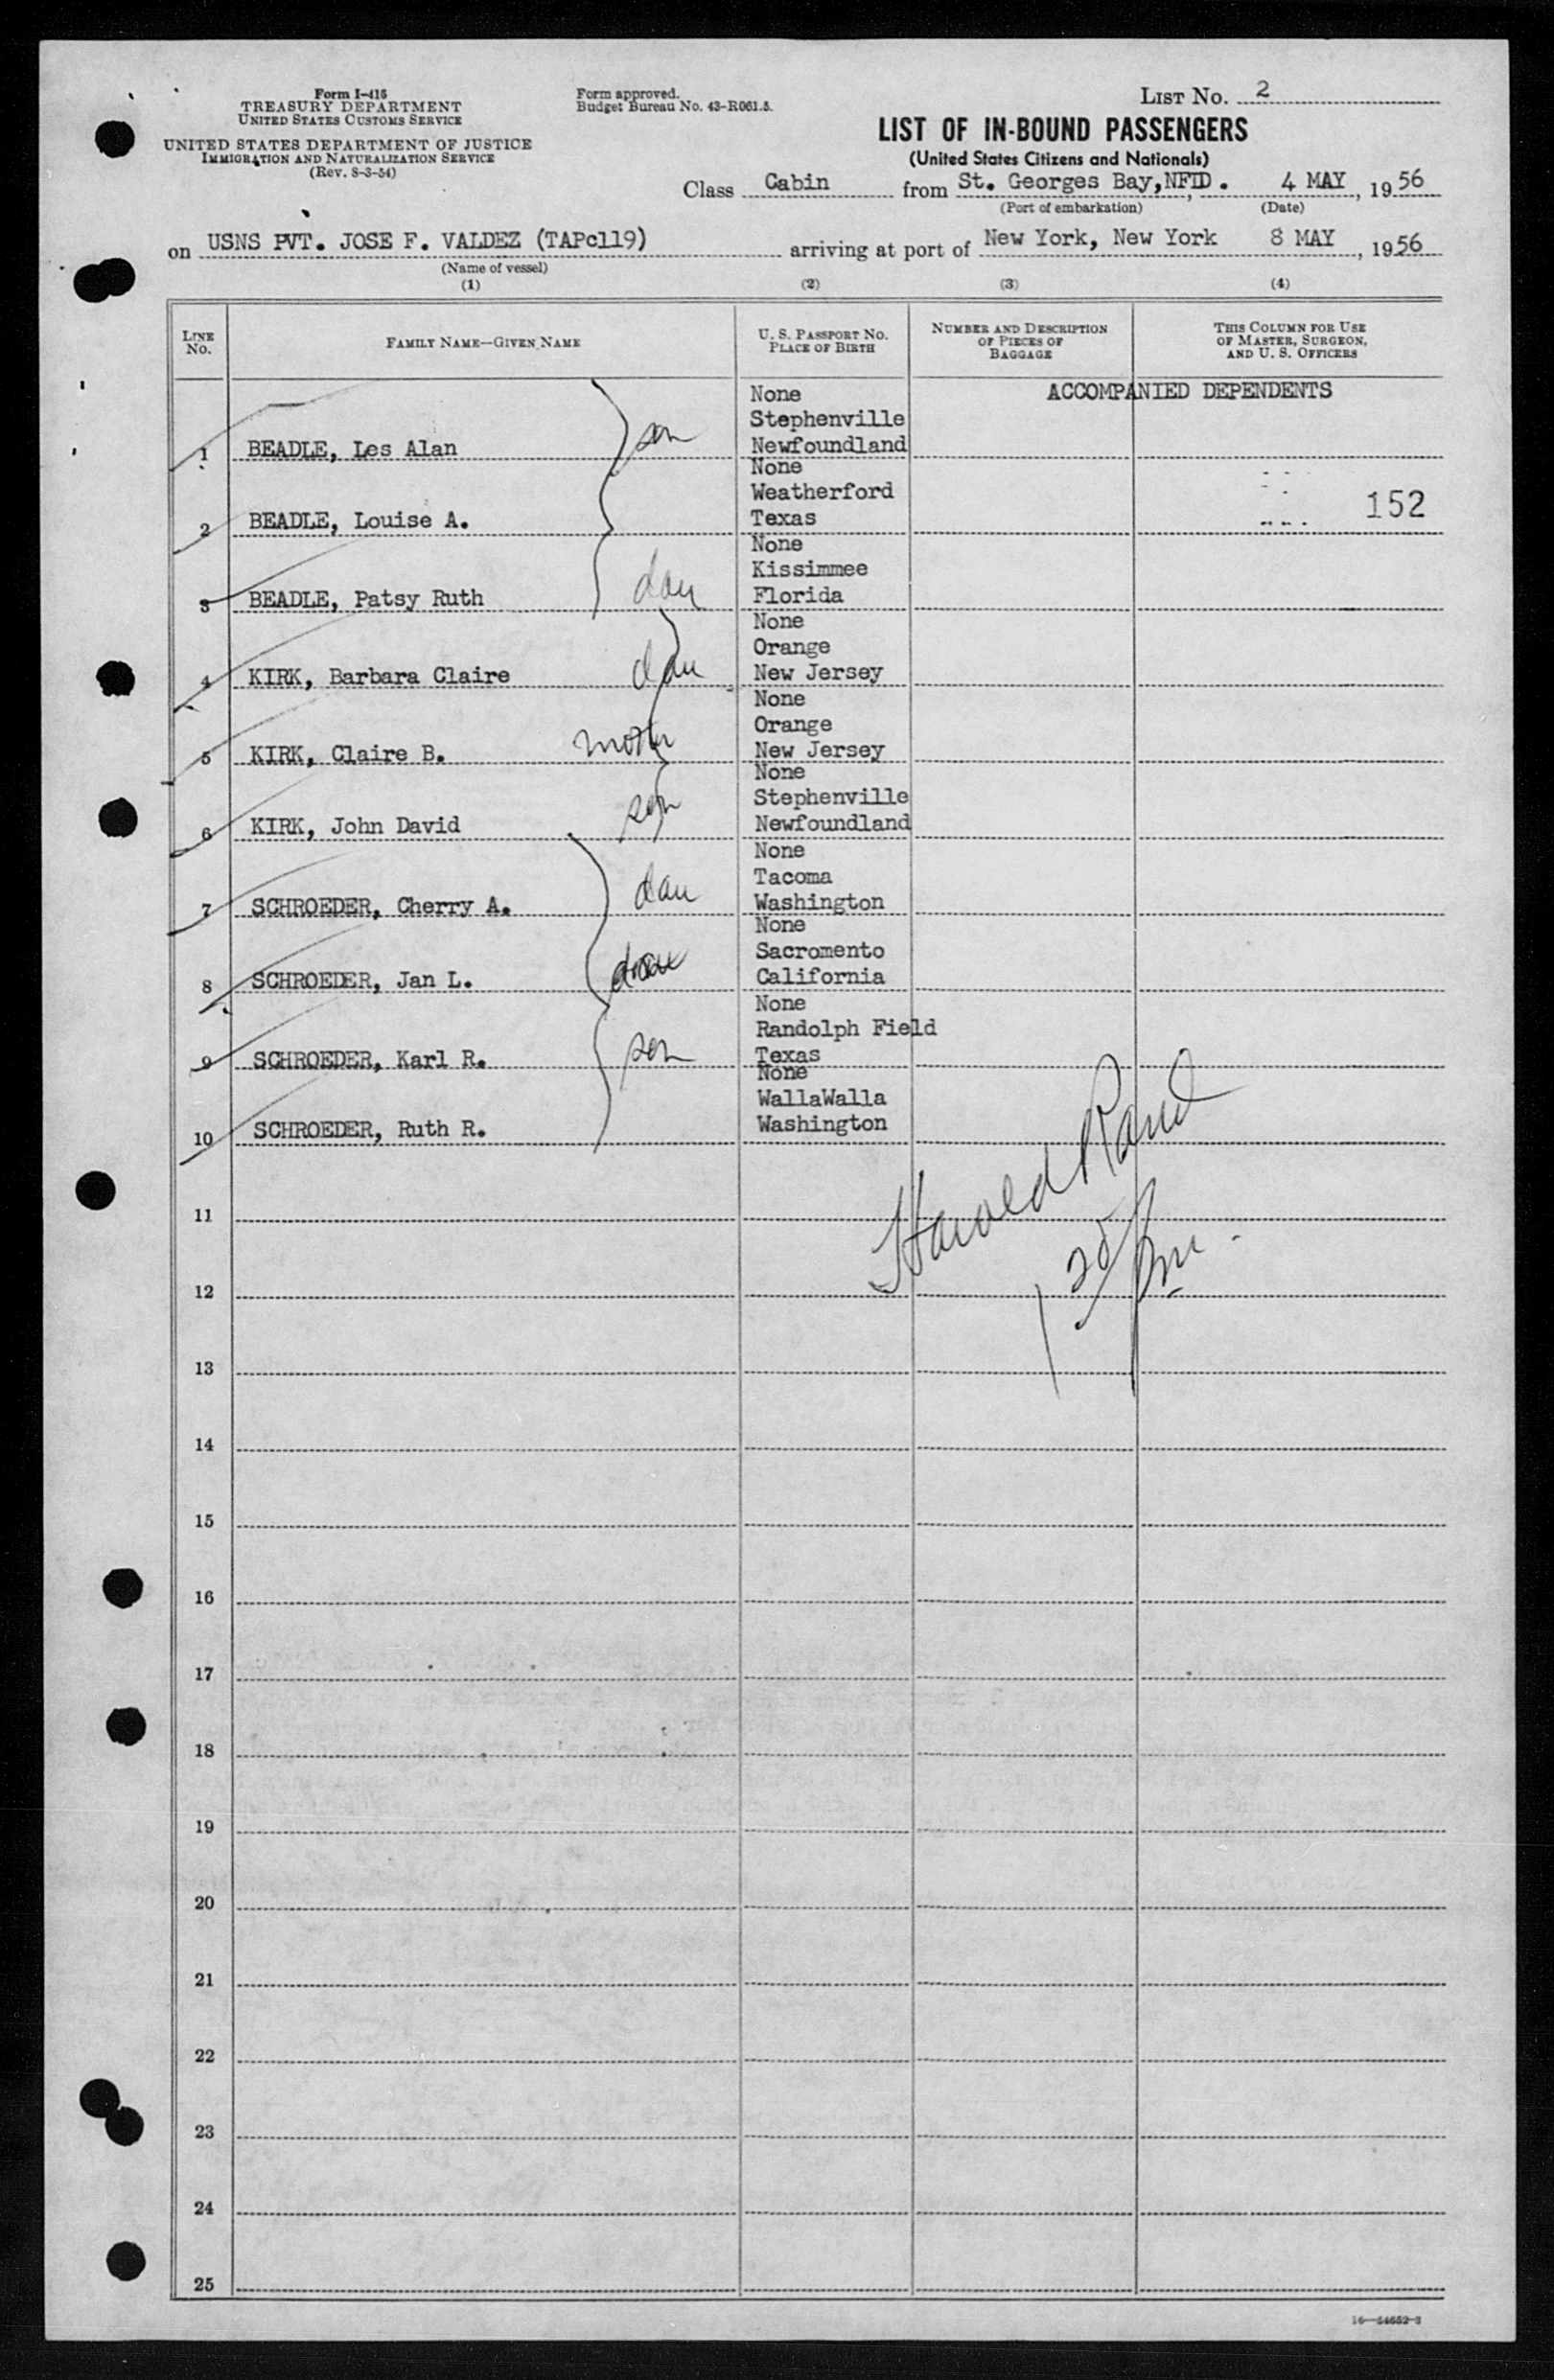 Form I-416
TREASURY DEPARTMENT
UNITED STATES CUSTOMS SERVICE
UNITED STATES DEPARTMENT OF JUSTICE
IMMIGRATION AND NATURALIZATION SERVICE
(Rev. 8-3-54)
Form approved.
Budget Bureau No. 43-R061.5.
LIST No. 2
LIST OF IN-BOUND PASSENGERS
(United States Citizens and Nationals)
Class Cabin from St. Georges Bay, NFLD. 4 MAY, 1956
(Port of embarkation) (Date)
on USNS PVT. JOSE F. VALDEZ (TAPc119) arriving at port of New York, New York 8 MAY, 1956
(Name of vessel)
(1) (2) (3) (4)
LINE No.
FAMILY NAME—GIVEN NAME
U. S. PASSPORT No.
PLACE OF BIRTH
NUMBER AND DESCRIPTION
OF PIECES OF
BAGGAGE
THIS COLUMN FOR USE
OF MASTER, SURGEON,
AND U. S. OFFICERS
ACCOMPANIED DEPENDENTS
None
Stephenville
1 BEADLE, Les Alan son Newfoundland
None
Weatherford
152
2 BEADLE, Louise A. Texas
None
Kissimmee
3 BEADLE, Patsy Ruth dau Florida
None
Orange
4 KIRK, Barbara Claire dau New Jersey
None
Orange
5 KIRK, Claire B. mother New Jersey
None
Stephenville
6 KIRK, John David son Newfoundland
None
Tacoma
7 SCHROEDER, Cherry A. dau Washington
None
Sacromento
8 SCHROEDER, Jan L. dau California
None
Randolph Field
9 SCHROEDER, Karl R. son Texas
None
WallaWalla
10 SCHROEDER, Ruth R. Washington
Harold Rand
11
12
13
14
15
16
17
18
19
20
21
22
23
24
25